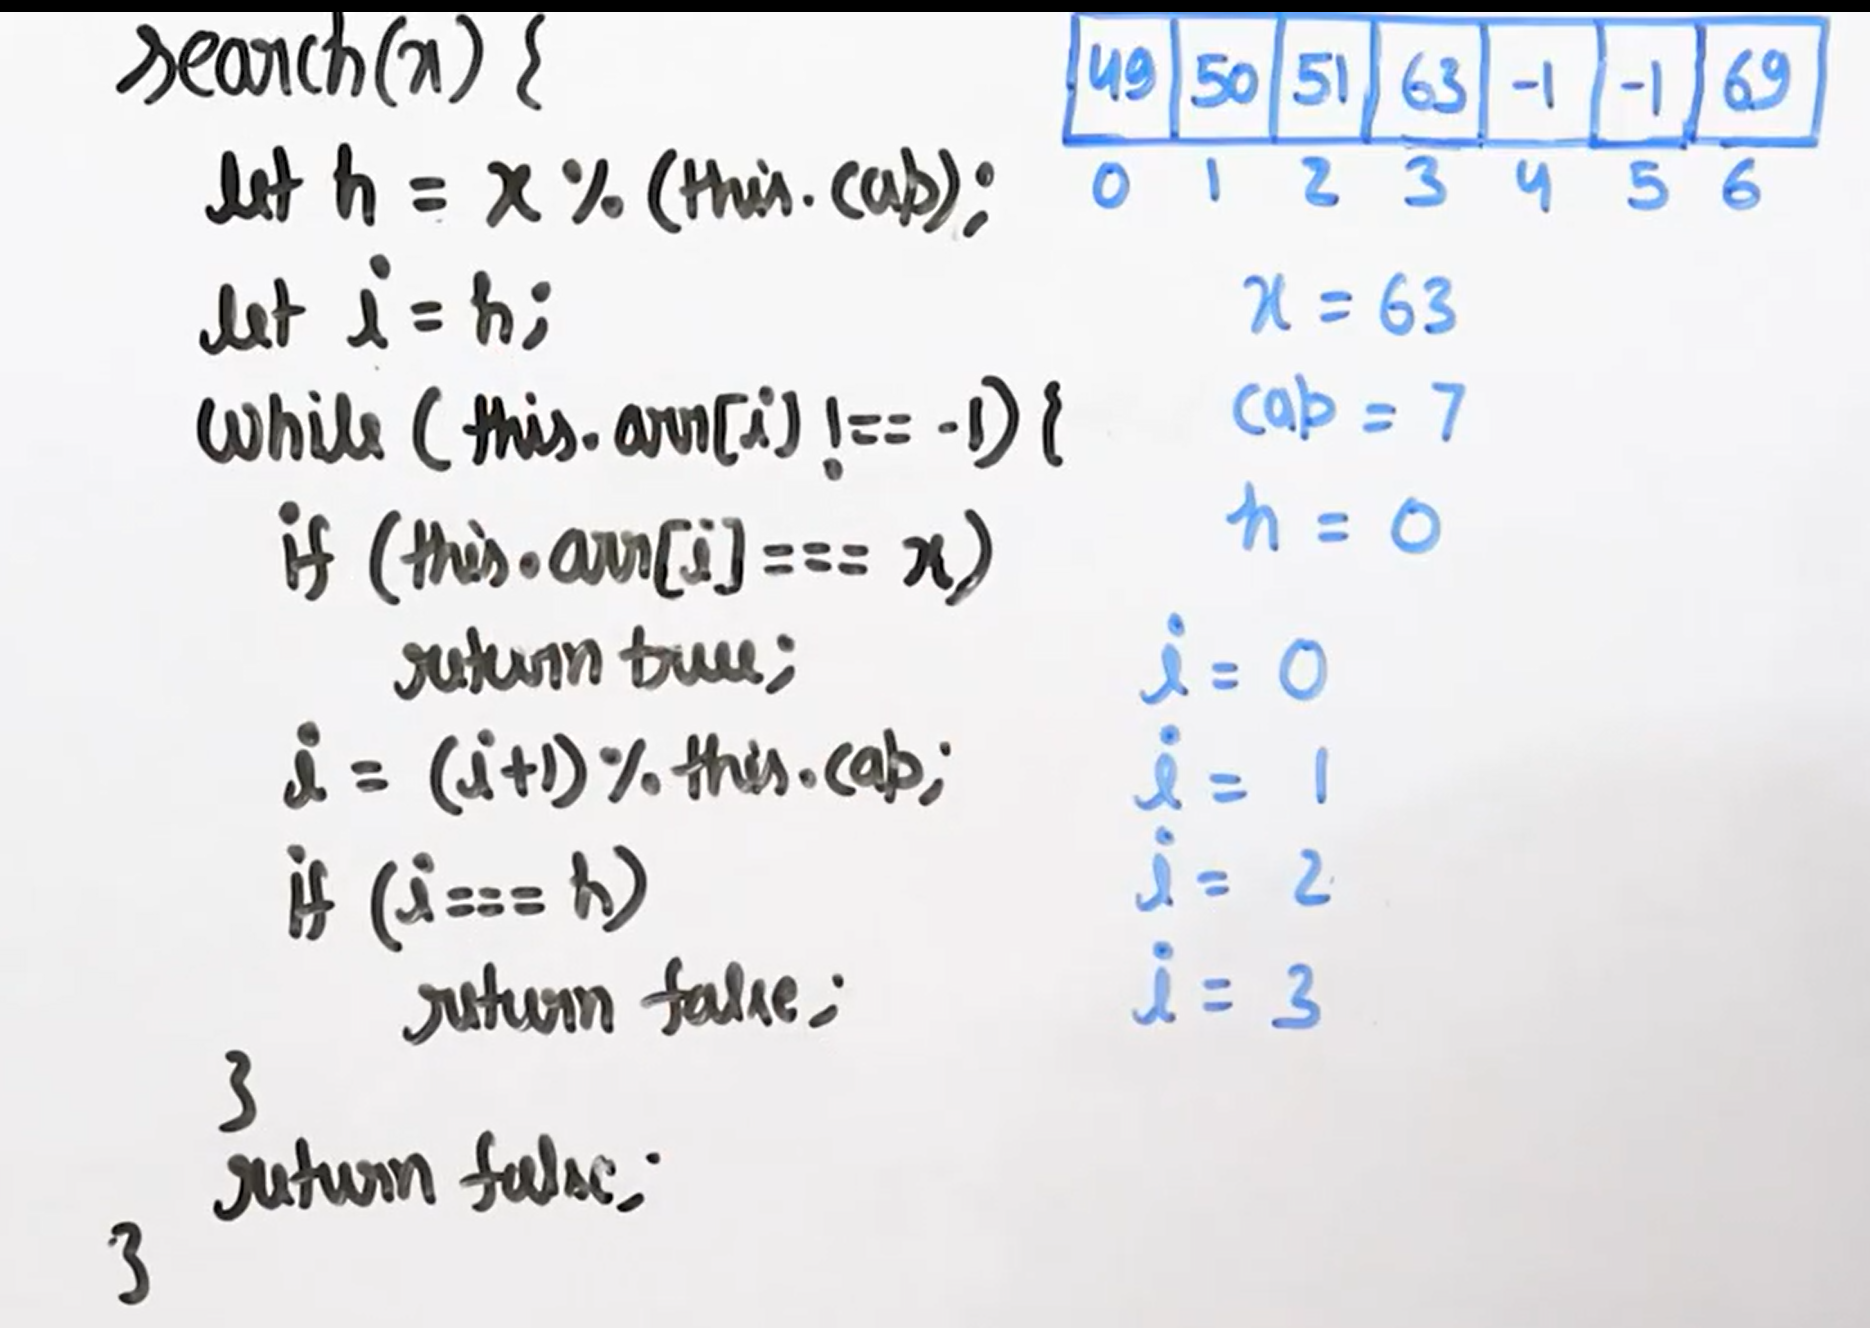 search(x) {
let h = x % (this.cap);
let i = h;
while (this.arr[i] !== -1) {
if (this.arr[i] === x)
return true;
i = (i+1) % this.cap;
if (i === h)
return false;
}
return false;
}
49 50 51 63 -1 -1 69
0 1 2 3 4 5 6
x = 63
cap = 7
h = 0
i = 0
i = 1
i = 2
i = 3